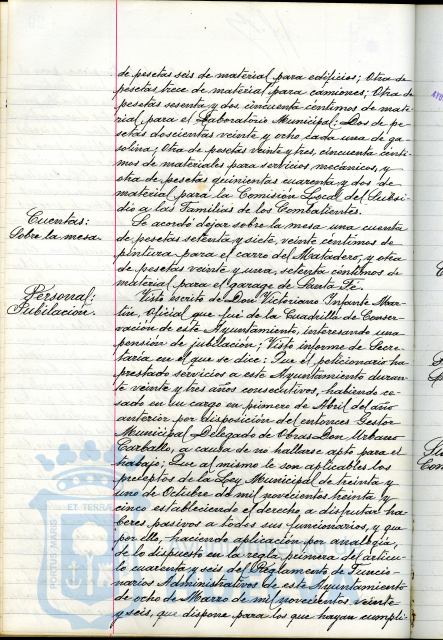 de pesetas seis de material para edificios; Otra de
pesetas trece de material para camiones; Otra de
pesetas sesenta y dos cincuenta céntimos de mate-
rial para el Laboratorio Municipal; Dos de pe-
setas doscientas veinte y ocho cada una de ga-
solina; Otra de pesetas veinte y tres, cincuenta cénti-
mos de materiales para servicios mecánicos, y
otra de pesetas quinientas cuarenta y dos de
material para la Comisión Local del Subsi-
dio a las Familias de los Combatientes.
Cuentas:
Sobre la mesa.
Se acordó dejar sobre la mesa una cuenta
de pesetas setenta y siete, veinte céntimos de
pintura para el carro del Matadero, y otra
de pesetas veinte y una, setenta céntimos de
material para el garage de Santa Fé.
Personal:
Jubilación.
Visto escrito de Don Victoriano Infante Mar-
tín, Oficial que fué de la Cuadrilla de Conser-
vación de este Ayuntamiento, interesando una
pensión de jubilación; Visto informe de Secre-
taría en el que se dice: Que el peticionario ha
prestado servicios a este Ayuntamiento duran-
te veinte y tres años consecutivos, habiendo ce-
sado en su cargo en primero de Abril del año
anterior por disposición del entonces Gestor
Municipal Delegado de Obras Don Urbano
Carballo, a causa de no hallarse apto para el
trabajo; Que al mismo le son aplicables los
preceptos de la Ley Municipal de treinta y
uno de Octubre de mil novecientos treinta y
cinco estableciendo el derecho a disfrutar ha-
beres pasivos a todos sus funcionarios, y que
por ello, haciendo aplicación por analogía,
de lo dispuesto en la regla primera del artícu-
lo cuarenta y seis del Reglamento de Funcio-
narios Administrativos de este Ayuntamiento
de ocho de Marzo de mil novecientos veinte
y seis, que dispone para los que hayan cumpli-
ET TERRA
PORTUS MARIS